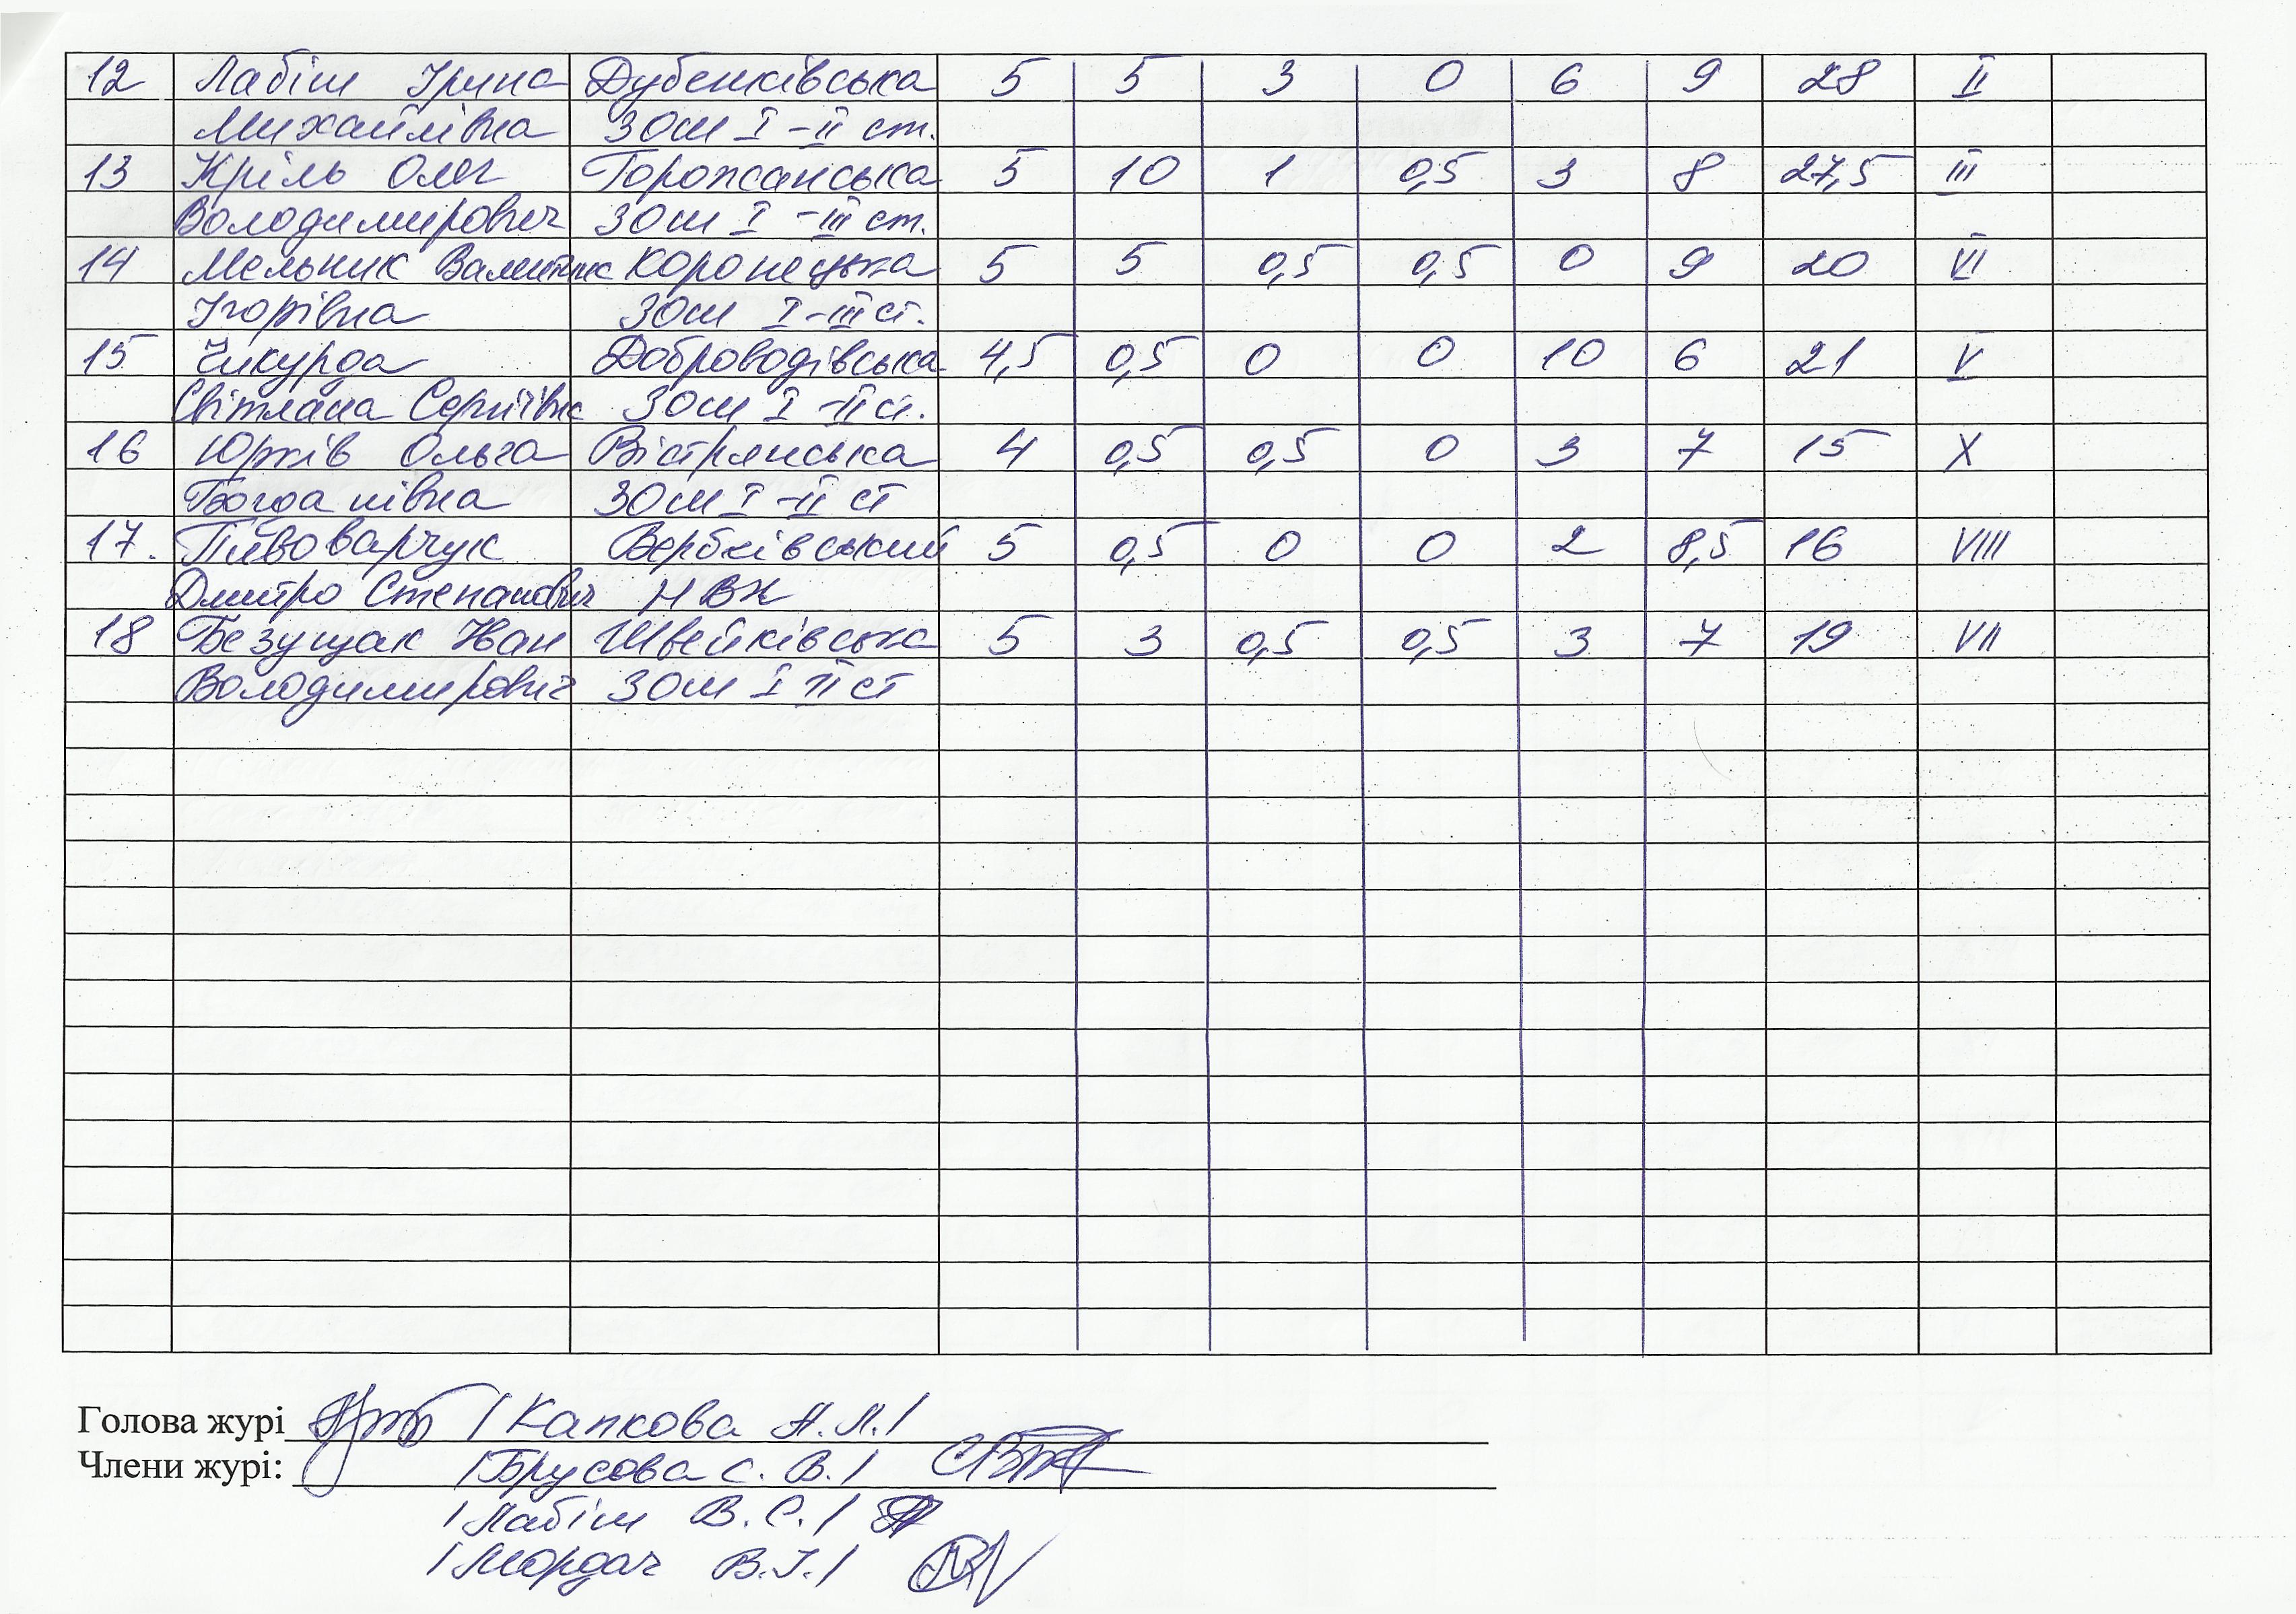 12 Лабіш Ірина Дубенківська 5 5 3 0 6 9 28 II
Михайлівна ЗОШ I-II ст.
13 Кріль Олег Горожанська 5 10 1 0,5 3 8 27,5 III
Володимирович ЗОШ I-III ст.
14 Мельник Коропецька 5 5 0,5 0,5 0 9 20 VI
Ігорівна ЗОШ I-III ст.
15 Чикурда Доброводівська 4,5 0,5 0 0 10 6 21 V
Світлана Сергіївна ЗОШ I-II ст.
16 Юрків Ольга Вістрянська 4 0,5 0,5 0 3 7 15 X
Богданівна ЗОШ I-II ст
17. Пивоварчук Вербківський 5 0,5 0 0 2 8,5 16 VIII
Дмитро Степанович НВК
18 Безущак Іван Швейківська 5 3 0,5 0,5 3 7 19 VII
Володимирович ЗОШ I II ст
Голова журі /Капкова Н.Л./
Члени журі: /Брусова С. В./
/Лабіш В.С./
/Мордач В.І./